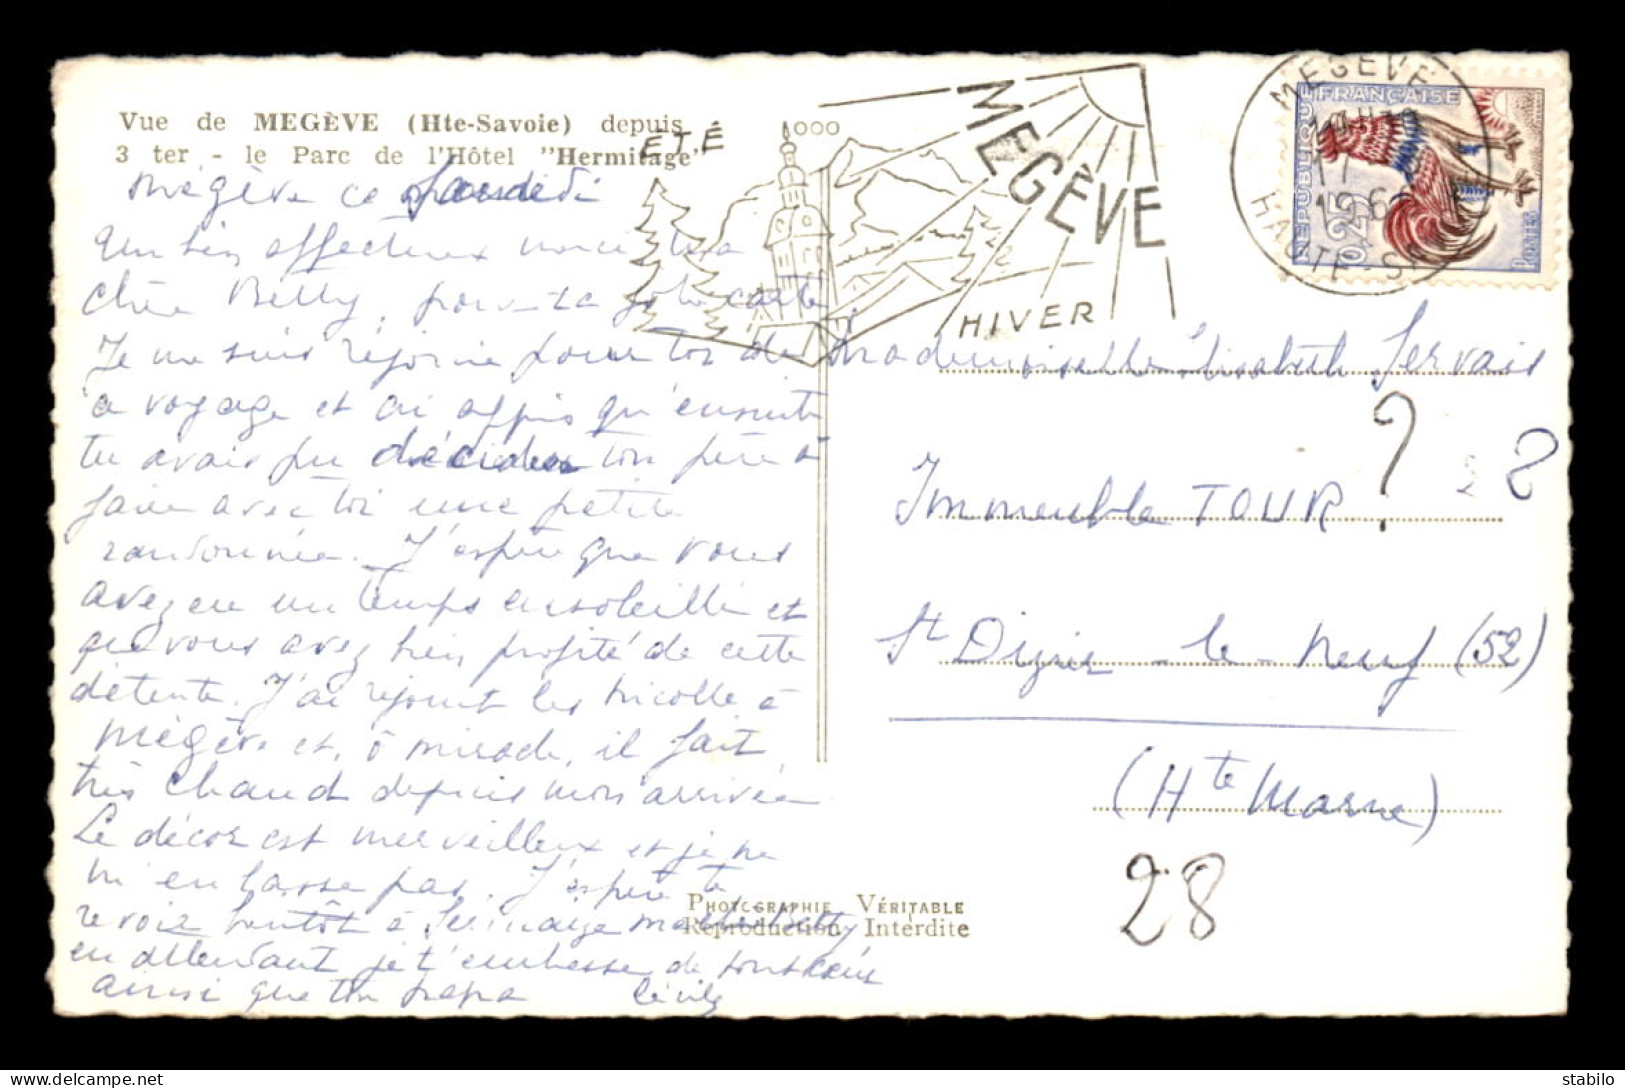 Vue de MEGÈVE (Hte-Savoie) depuis
3 ter - le Parc de l'Hôtel "Hermitage"
ÉTÉ
1000
MEGÈVE
HIVER
MEGÈVE
HAUTE-SAV
RÉPUBLIQUE FRANÇAISE
0,25
POSTES
Mégève ce
Un bien affectueux merci ma
chère Betty, pour ta jolie carte
Je me suis réjouie pour toi de
ce voyage et ai appris qu'ensuite
tu avais pu décider ton père à
faire avec toi une petite
randonnée. J'espère que vous
avez eu un temps ensoleillé et
que vous avez bien profité de cette
détente. J'ai rejoint les Nicolle à
Mégève et, ô miracle, il fait
très chaud depuis mon arrivée
Le décor est merveilleux et je ne
m'en lasse pas. J'espère te
revoir bientôt à ma Betty
en attendant je t'embrasse de tout cœur
ainsi que ton papa Cécile
Mademoiselle Elisabeth Servais
Immeuble TOUR ? 28
St Dizier-le-Neuf (52)
(Hte Marne)
28
PHOTOGRAPHIE VÉRITABLE
Reproduction Interdite
delcampe.net
schao52